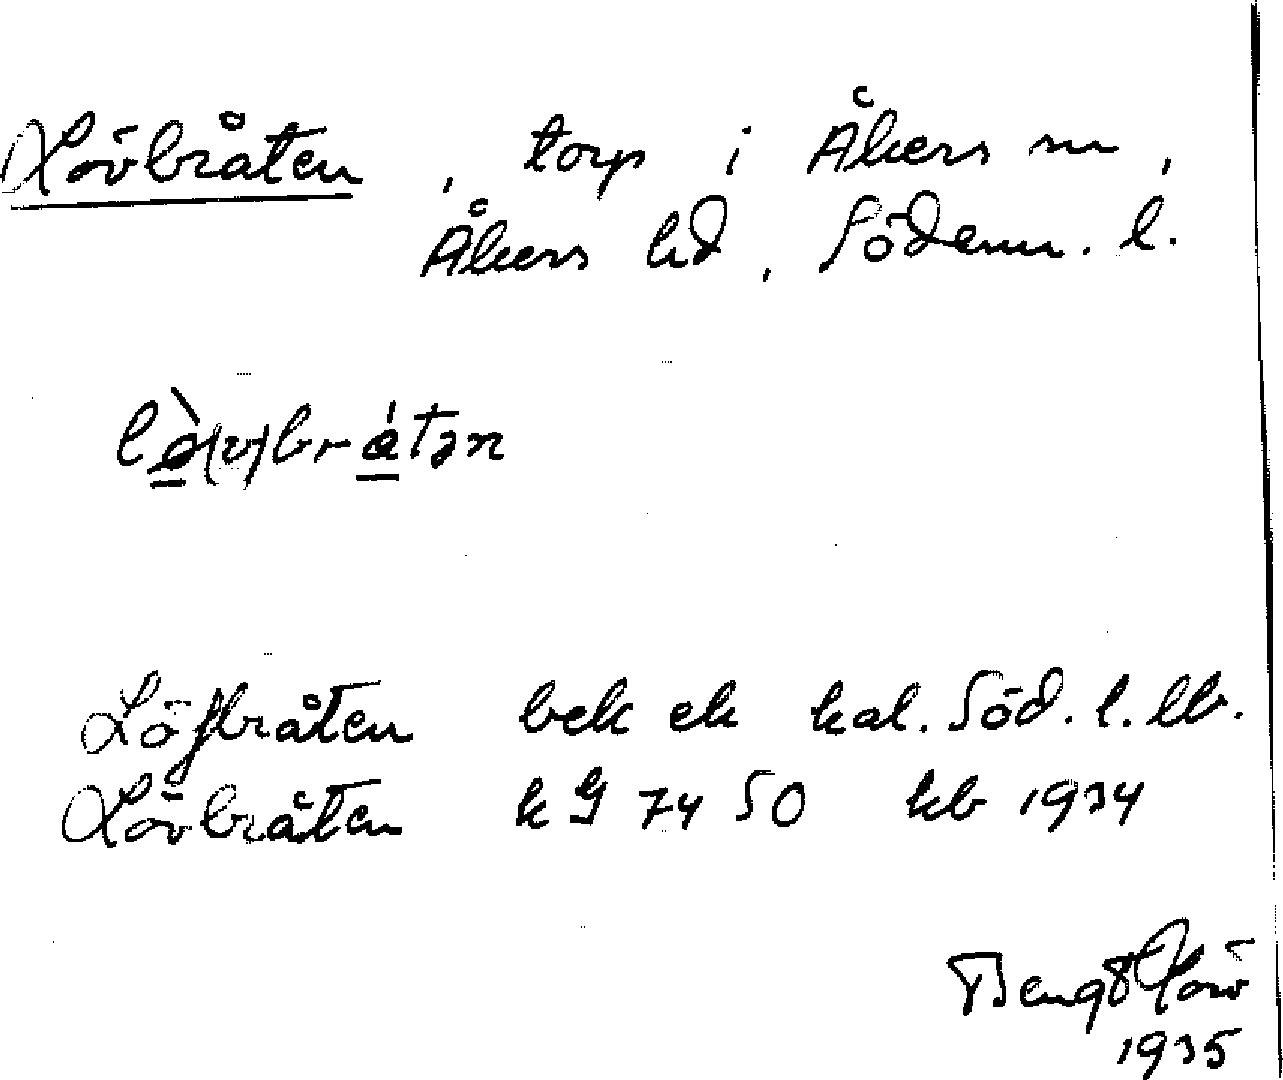 Lövbråten, torp i Åkers sn,
Åkers hd, Söderm. l.
Löfbråten bek ek kal. Söd. l. lb.
Lövbråten k G 74 50 kb 1934
Bengt
1935